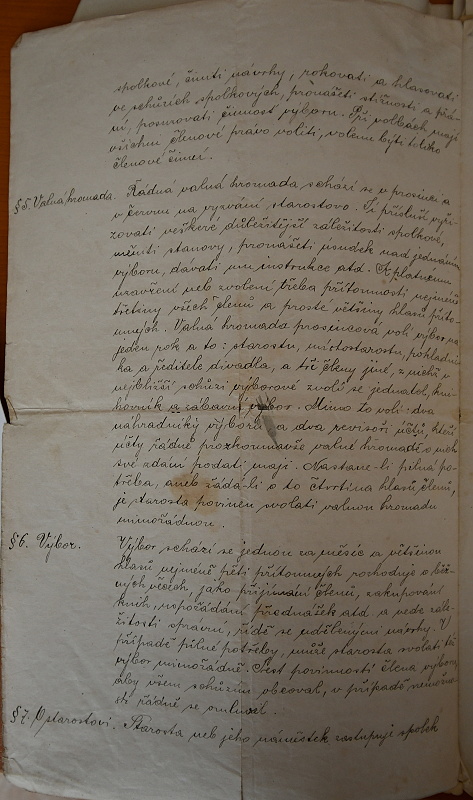 spolkové, činiti návrhy, rokovati a hlasovati
ve schůzích spolkových, pronášeti stížnosti a přá-
ní, posuzovati činnost výboru. Při volbách mají
všichni členové právo voliti, voleni býti toliko
členové činní.
§ 5. Valná hromada. Řádná valná hromada schází se v prosinci a
v červnu na vyzvání starostovo. Jí přísluší vyři-
zovati veškeré důležitější záležitosti spolkové,
měniti stanovy, pronášeti úsudek nad jednáním
výboru, dávati mu instrukce atd. K platnému
uzavření neb zvolení třeba přítomnosti nejméně
třetiny všech členů a prosté většiny hlasů příto-
mných. Valná hromada prosincová volí výbor na
jeden rok a to: starostu, místostarostu, pokladní-
ka a ředitele divadla, a tři členy jiné, z nichž v
nejbližší schůzi výborové zvolí se jednatel, kni-
hovník a zábavní výbor. Mimo to volí: dva
náhradníky výboru a dva revisory účtů, kteří
účty řádně prozkoumavše valné hromadě o nich
své zdání podati mají. Nastane-li pilná po-
třeba, aneb žádá-li o to čtvrtina hlasů členů,
je starosta povinen svolati valnou hromadu
mimořádnou.
§ 6. Výbor. Výbor schází se jednou za měsíc a většinou
hlasů nejméně pěti přítomných rozhoduje o běž-
ných věcech, jako přijímání členů, zakupování
knih, uspořádání přednášek atd. a vede zále-
žitosti správní, řídě se udělenými návrhy. V
případě pilné potřeby, může starosta svolati též
výbor mimořádně. Jest povinností člena výboru,
aby všem schůzím obcoval, v případě nemožno-
sti řádně se omluvil.
§ 7. O starostovi. Starosta neb jeho náměstek zastupuje spolek